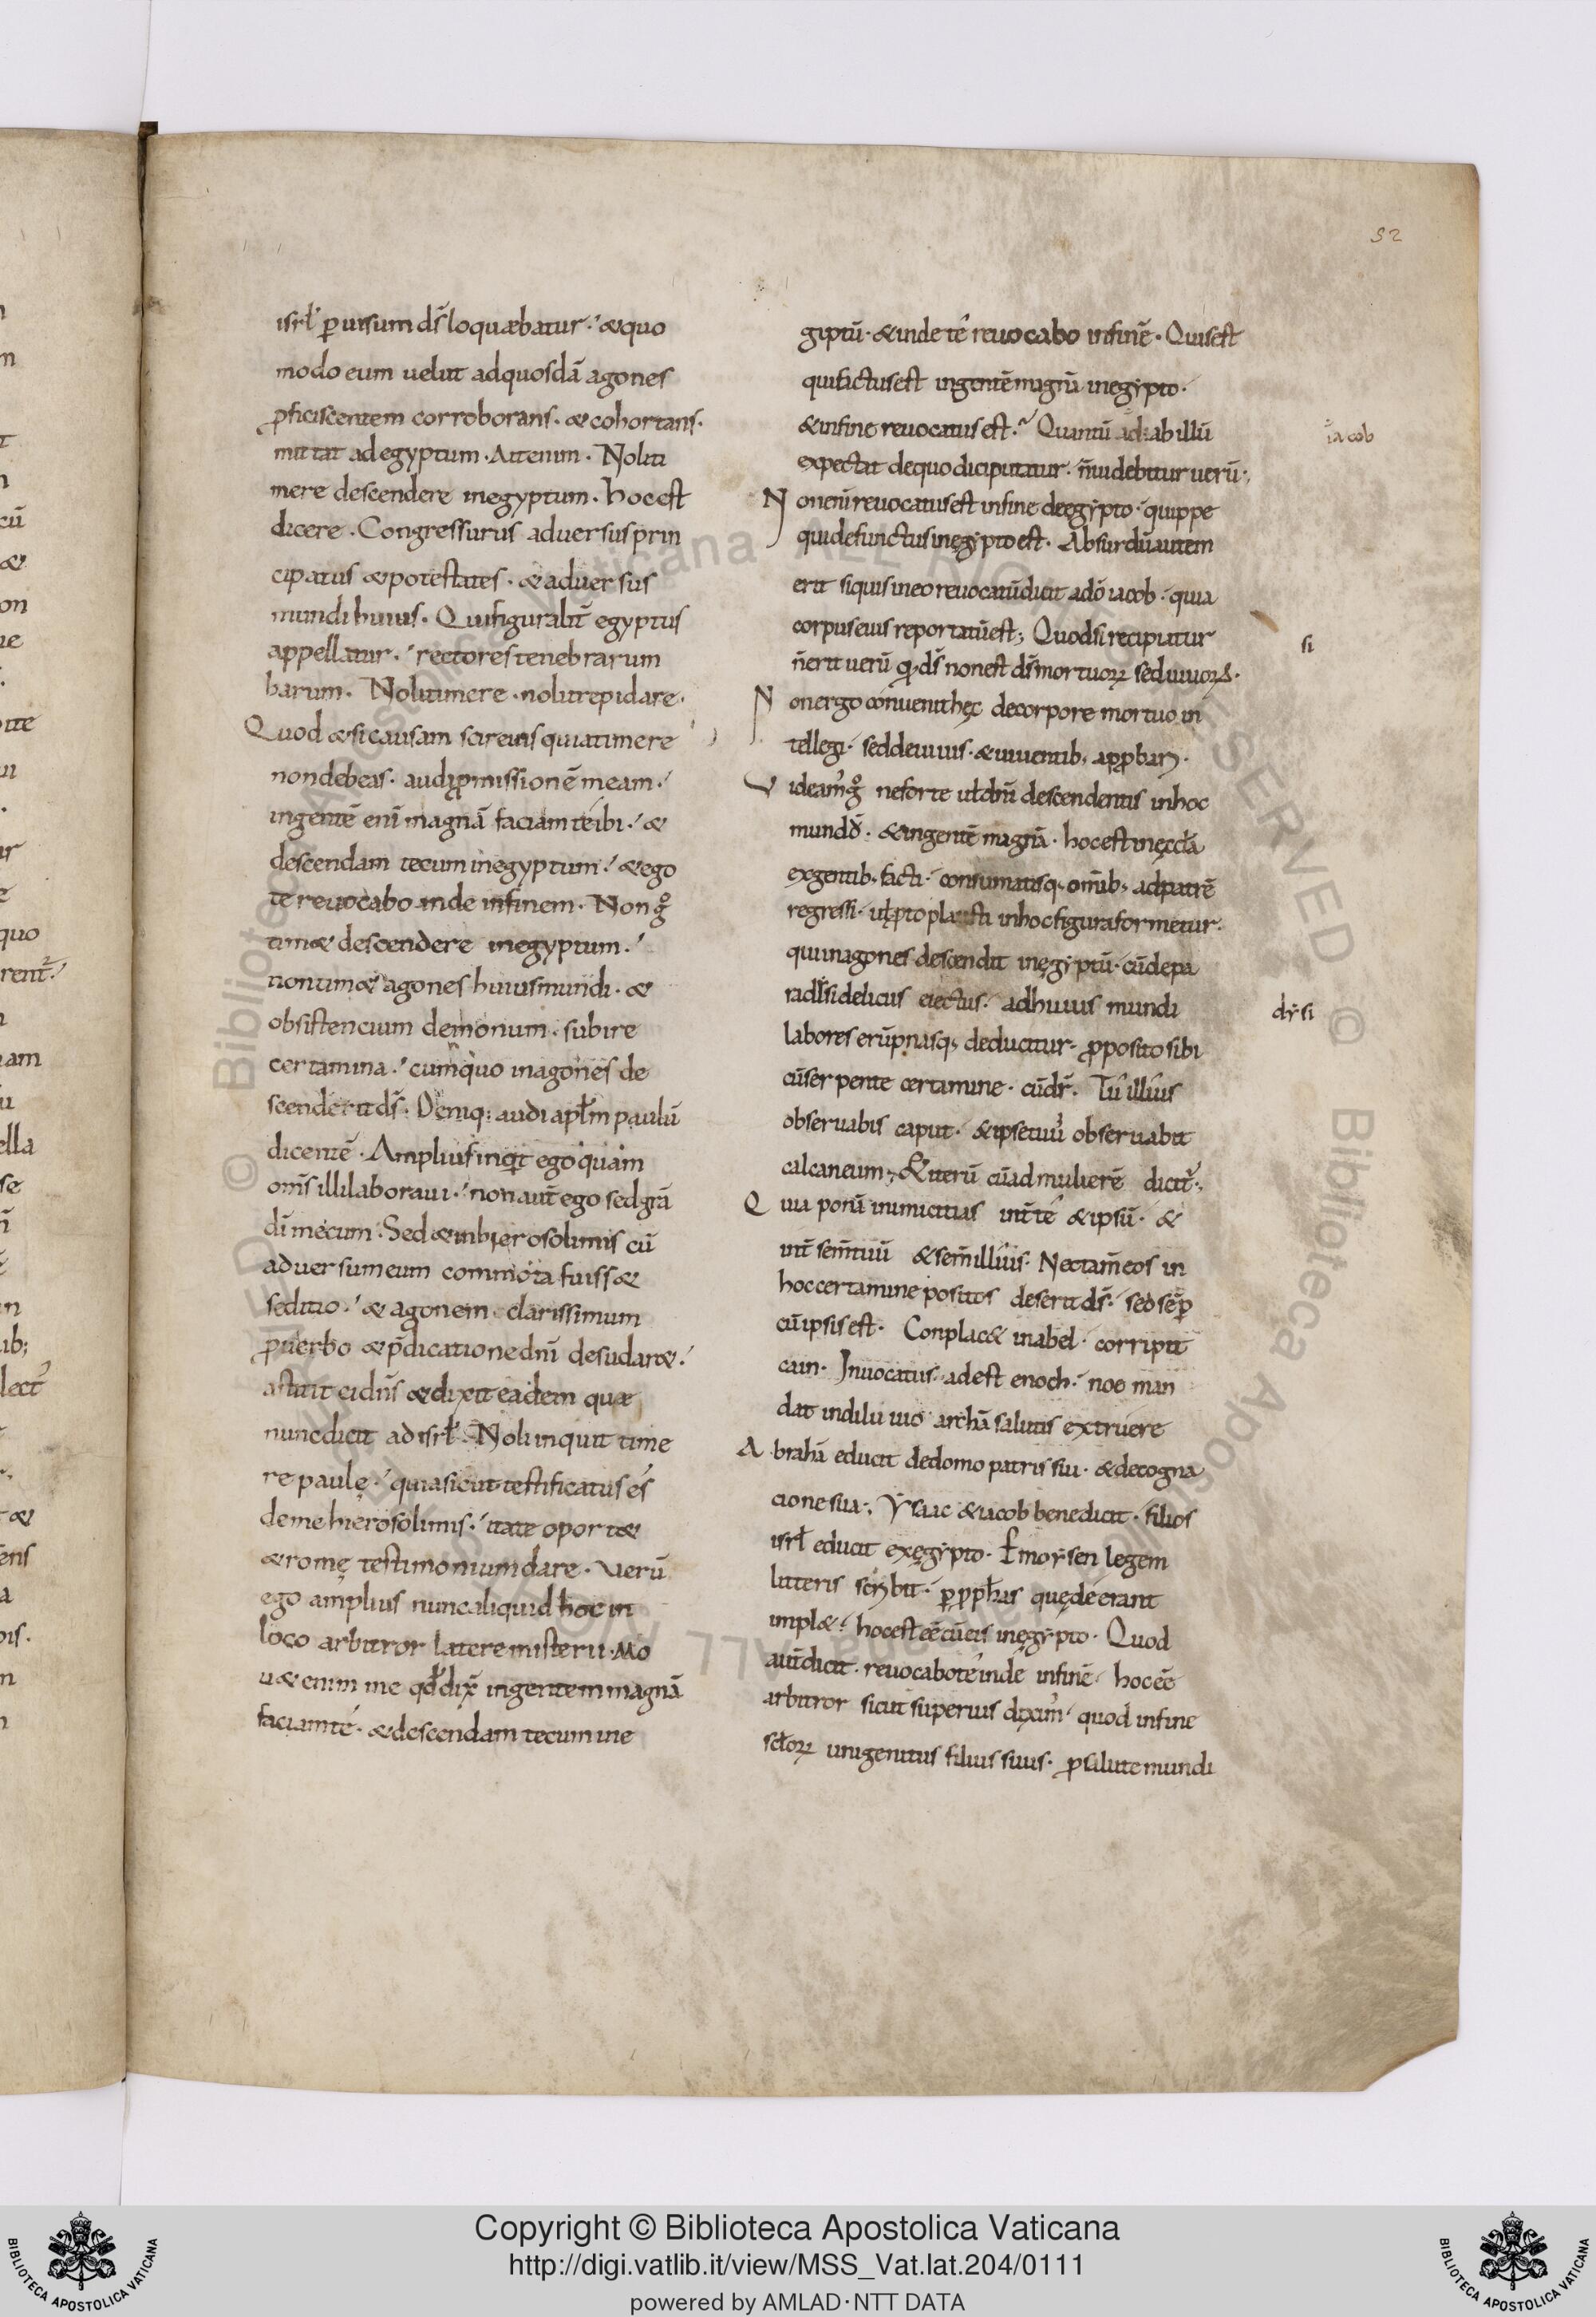 52
isrł ꝑ uisum dš loquæbatur. ætquo
modo eum uelut adquosdā agones
ꝓficiscentem corroborans. & cohortans.
mittat ad egyptum. Aitenim. Noliti
mere descendere inegyptum. hoc est
dicere. Congressurus aduersus prin
cipatus & potestates. & aduersus
mundi huius. Qui figuralit̄ egyptus
appellatur. rectores tenebrarum
harum. Nolitimere. noli trepidare.
Quod & si causam scire uis quia timere
non debeas. audi ꝓmissionē meam.
ingentē enī magnā faciam té ibi. &
descendam tecum inegyptum. & ego
te reuocabo inde infinem. Non g̊
tim& descendere inegyptum.
non tim& agones huius mundi. &
obsistencium demonum. subire
certamina. cumquo inagones de
scenderit dš. Deniq; audi apłm paulū
dicentē. Amplius inqt ego quam
om̄s illi laboraui. non aut̄ ego sed grā
dī mecum. Sed & inhierosolimis cū
aduersum eum commota fuiss&
seditio. & agonem clarissimum
ꝓ uerbo & p̄dicatione dnī desudar&.
astitit ei dn̄s & dixit eadem quæ
nunc dicit ad isrł. Noli inquit time
re paulę. quia sicut testificatus és
de me hierosolimis. ita te oport&
& romę testimonium dare. Verū
ego amplius nunc aliquid hoc in
loco arbitror latere misterii. Mo
u& enim me qđ dix̄ ingentem magnā
faciam té. & descendam tecum ine
giptū. & inde té reuocabo infinē. Quis est
qui factus est ingentē magnū inegypto.
& infine reuocatus est. Quantū ad ab illū
iacob
expectat de quo diciputatur. n̄ uidebitur uerū.
Non enī reuocatus est infine deęgypto. quippe
qui defunctus inęgypto est. Absurdū autem
erit siquis in eo reuocatū dicit adō iacob. quia
corpus eius reportatū est; Quodsi recipiatur
si
n̄ erit uerū q dš non est dš mortuoꝝ sed uiuoꝝ.
Non ergo conuenit hęc decorpore mortuo in
tellegi. sed de uiuis. & uiuentib; app̱bari.
Videam' g̊ ne forte uł dnī descendentis inhoc
mundō. & ingentē magnā. hoc est inęcctā
exgentib; facti. consumatisq; omīb; ad patrē
regressi. uł ꝓtoplausti inhoc figura formetur.
qui inagones descendit inęgyptū. cū depa
radisi delicus eiectus. adhuius mundi
dysi
labores erūpnasq; deducitur. ꝓposito sibi
cū serpente certamine. cū dr̄. Tú illíus
obseruabis caput. & ipse tuū obseruabit
calcaneum; & iterū cū ad mulierē dicit.
Quia ponā inimicitias int̄ té & ipsū. &
int̄ sem̄ tuū & sem̄ illíus. Nec tam̄ eos in
hoc certamine positos deserit dš. sed sēp̱
cū ipsis est. Conplac& inabel. corripit
cain. Inuocatus. adest enoch. noe man
dat indiluuio archā salutis extruere
Abrahā educit dedomo patris sui. & decogna
cione sua; Ysaac & iacob benedicit. filios
isrł educit exęgypto. ꝑ moysen legem
litteris scribit. ꝑ ꝓphas quę deerant
impl&. hoc est eē cū eis inęgypto. Quod
aut̄ dicit. reuocabo té inde infinē. hoc eē
arbitror sicut superius dixim'. quod infine
sctoꝝ unigenitus filius suus. ꝓ salute mundi
Copyright © Biblioteca Apostolica Vaticana
http://digi.vatlib.it/view/MSS_Vat.lat.204/0111
powered by AMLAD·NTT DATA